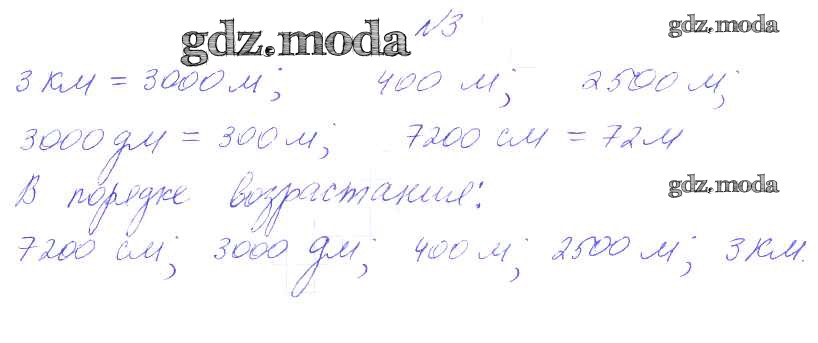 gdz.moda №3 gdz.moda
3 км = 3000 м; 400 м; 2500 м;
3000 дм = 300 м; 7200 см = 72 м
В порядке возрастания: gdz.moda
7200 см; 3000 дм; 400 м; 2500 м; 3 км.